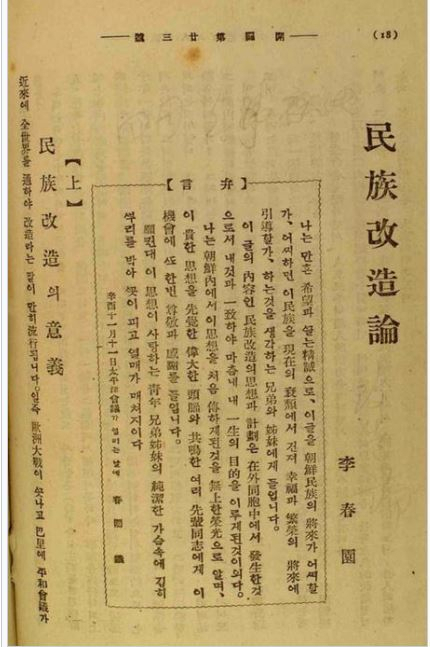 (18)
開闢第廿三號
民族改造論
李春園
【弁言】
나는 만흔 希望과 끌는 精誠으로, 이글을 朝鮮民族의 將來가 어쩌할
가, 어찌하면 이民族을 現在의 衰頹에서 건져 幸福과 繁榮의 將來에
引導할가, 하는것을 생각하는 兄弟와 姉妹에게 들입니다.
이 글의 內容인 民族改造의 思想과 計劃은 在外同胞中에서 發生한것
으로서 내것과 一致하야 마츰내 내 一生의 目的을 이루게된것이외다.
나는 朝鮮內에서 이思想을 처음 傳하게된것을 無上한 榮光으로 알며,
이 貴한 思想을 先覺한 偉大한 頭腦와 共鳴한 여러 先輩同志에게 이
機會에 또한번 尊敬과 感謝를 들입니다.
願컨대 이 思想이 사랑하는 靑年 兄弟姉妹의 純潔한 가슴속에 깁히
뿌리를 박아 꼿이 피고 열매가 매쳐지이다
辛酉十一月十一日太平洋會議가 열리는 날에 春園識
【上】
民族改造의 意義
近來에 全世界를 通하야 改造라는 말이 만히 流行됩니다. 일즉 歐洲大戰이 끗나고 巴里에 平和會議가